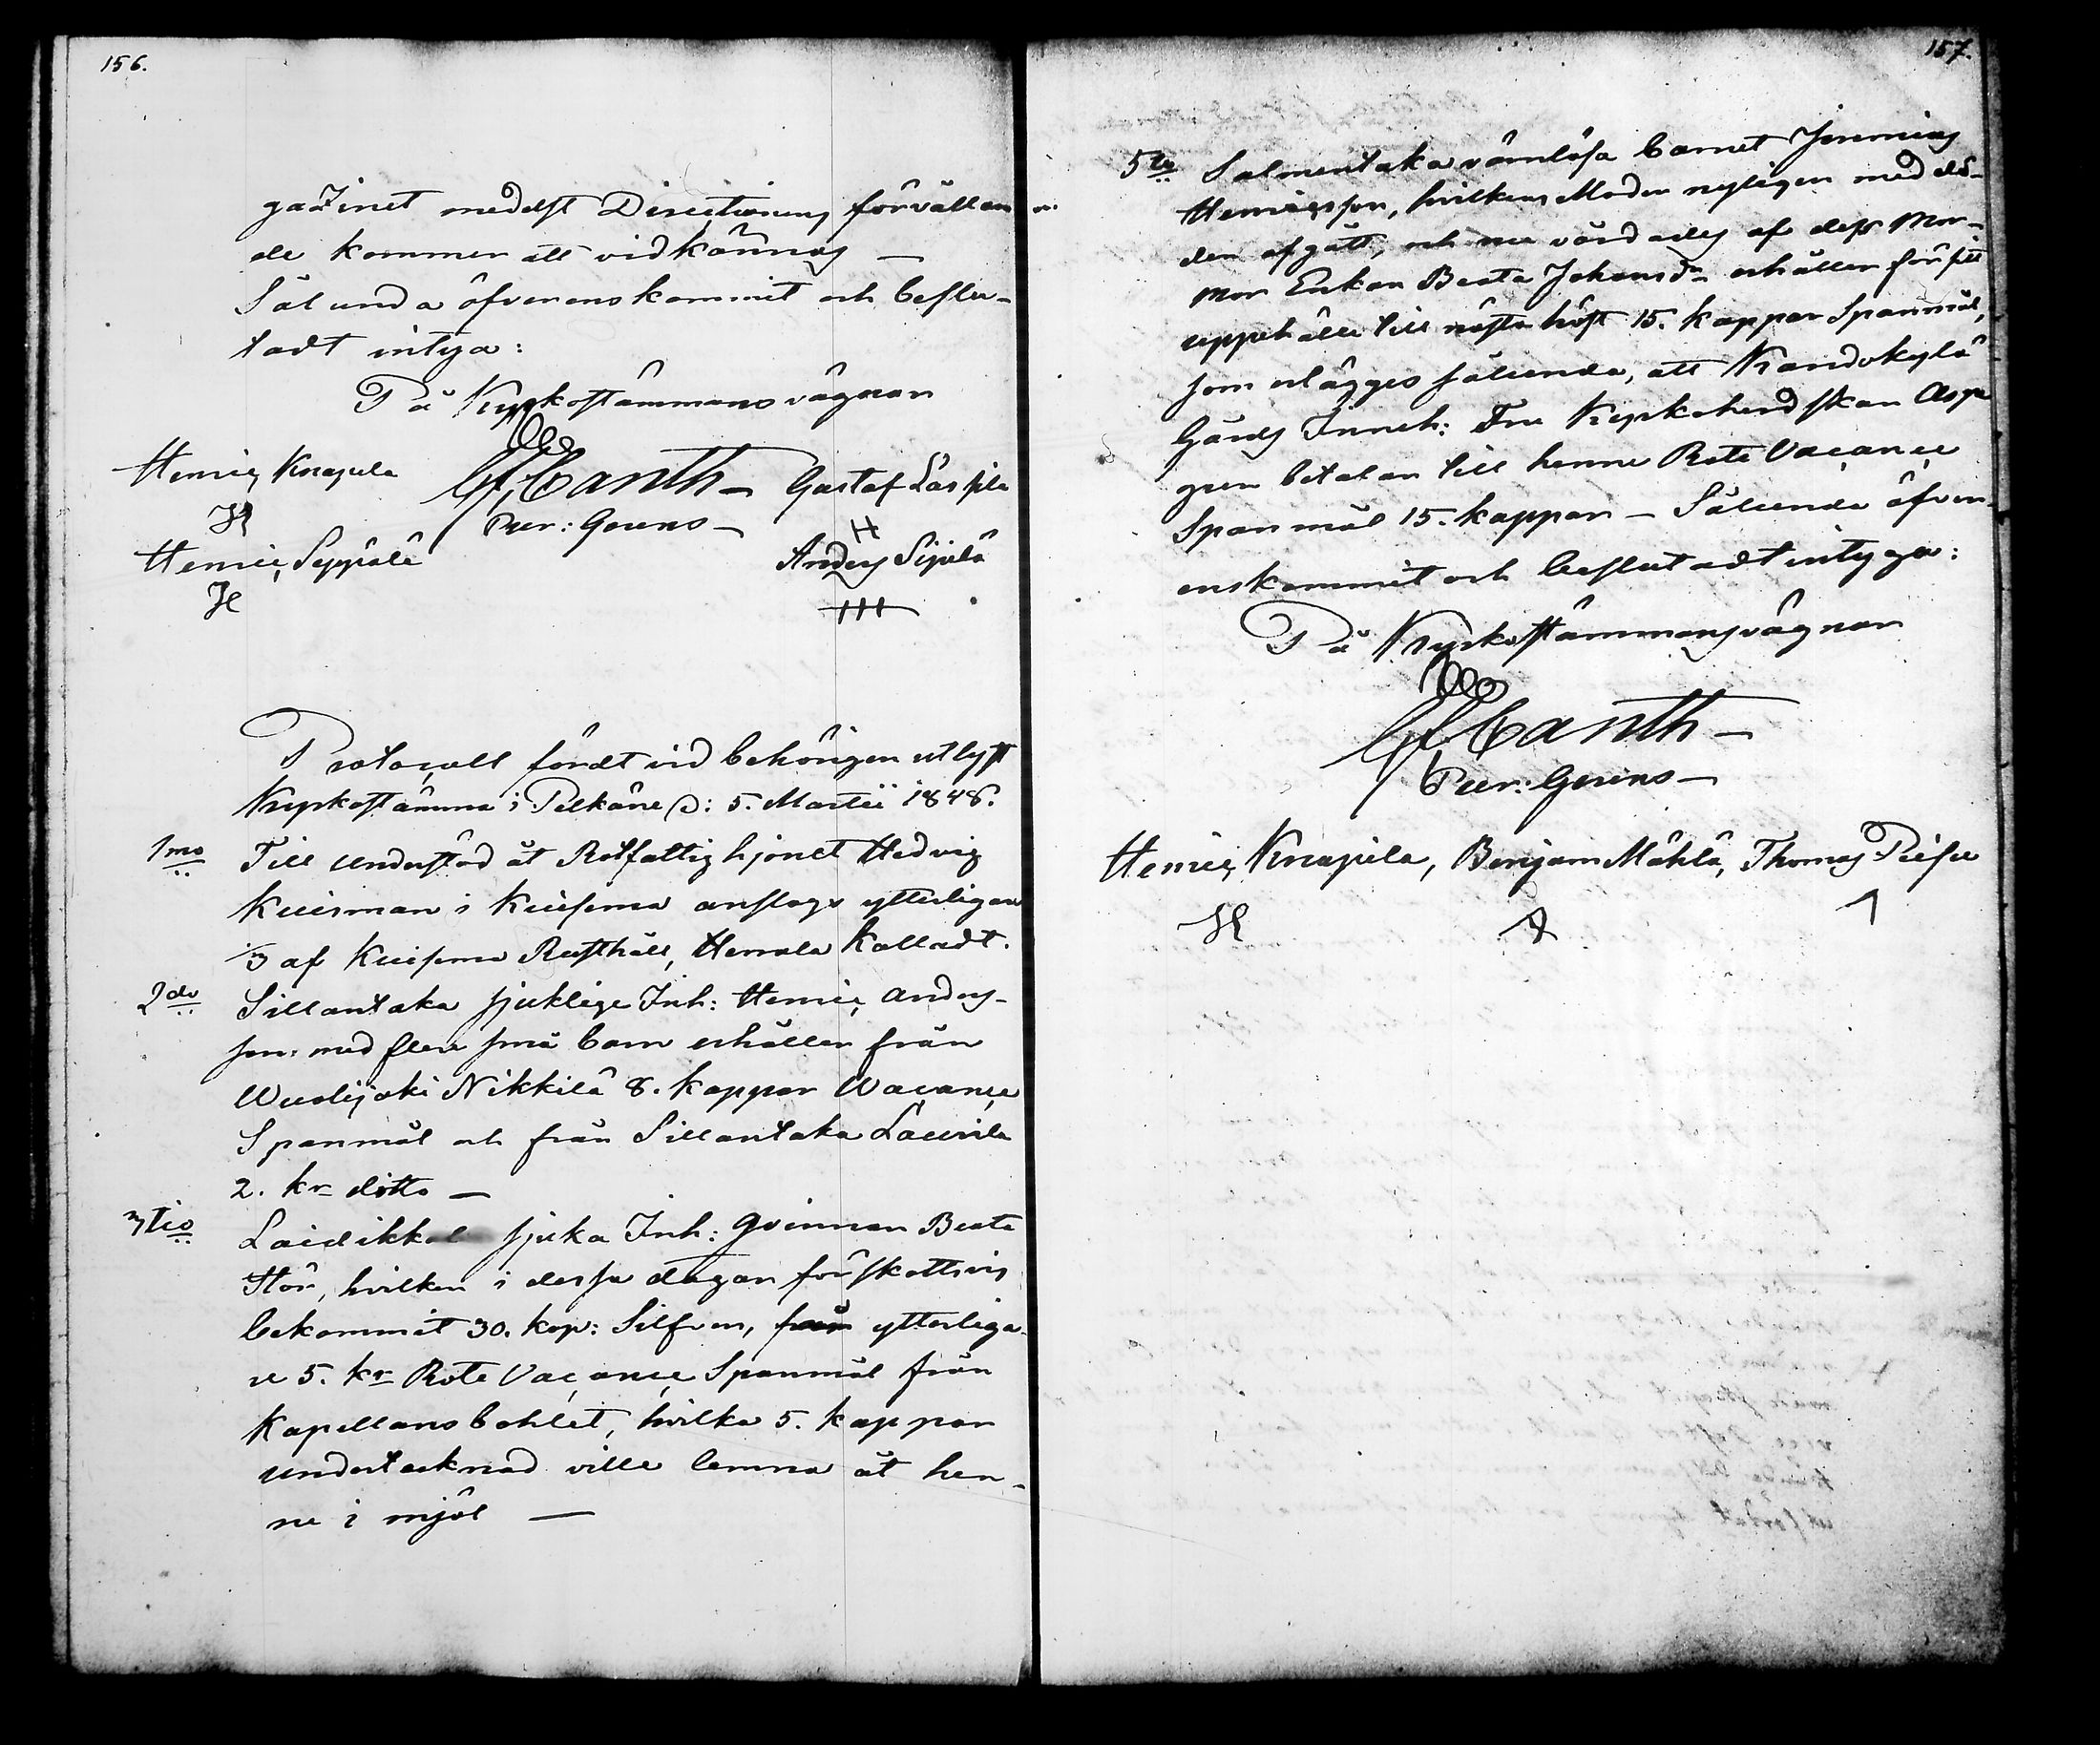 156.
gazinet medelst Directionens förvållan-
de kommer att vidkännas —
Sålunda öfverenskommit och beslu-
tadt intyga:
På Kyrkostämmans vägnar
Henric Knapila
C. J. Canth — Gustaf Laspila
Pucr: Gerens —
Henric Seppälä
Anders Sipilä
Protocoll fördt vid behörigen utlyst
Kyrkostämma i Pelkäne d: 5. Martii 1848.
1mo Till understöd åt Rotfattig hjonet Hedvig
Kuisman i Kuisema anslogs ytterligare
1/3 af Kuisema Rusthåll, Herrala kalladt.
2do Sillantaka sjuklige Inh: Henric Anders-
son, med flere små barn erhåller från
Wuolijoki Nikkilä 8. kappar Vacance
Spanmål och från Sillantaka Laurila
2. kr ditto —
3tio Laidikkal sjuka Inh: qvinnan Beata
Stör, hvilken i dessa dagar förskottsvis
bekommit 30. kop: Silfver, får ytterliga-
re 5. kr Rote Vacance Spanmål från
Kapellansbohlet, hvilka 5. kappar
undertecknad ville lemna åt hen-
ne i mjöl —
157.
5to Salmentaka värnlösa barnet Jeremias
Henricsson, hvilkens Moder nyligen med dö-
den afgått, och nu vårdades af dess Mor-
mor Enkan Beata Johansdr erhåller för sitt
uppehälle till nästa höst 15. kappar Spanmål,
som erlägges sålunda, att Kandokylä
Gårds Inneh: Fru Kyrkoherdskan Aspe
gren betalar till henne Rote Vacance
Spanmål 15. kappar — Sålunda öfver-
enskommit och beslutadt intyga:
På Kyrkostämmans vägnar
C. J. Canth —
Pucr: Gerens —
Henric Knapila, Benjam Mähkä, Thomas Piesu